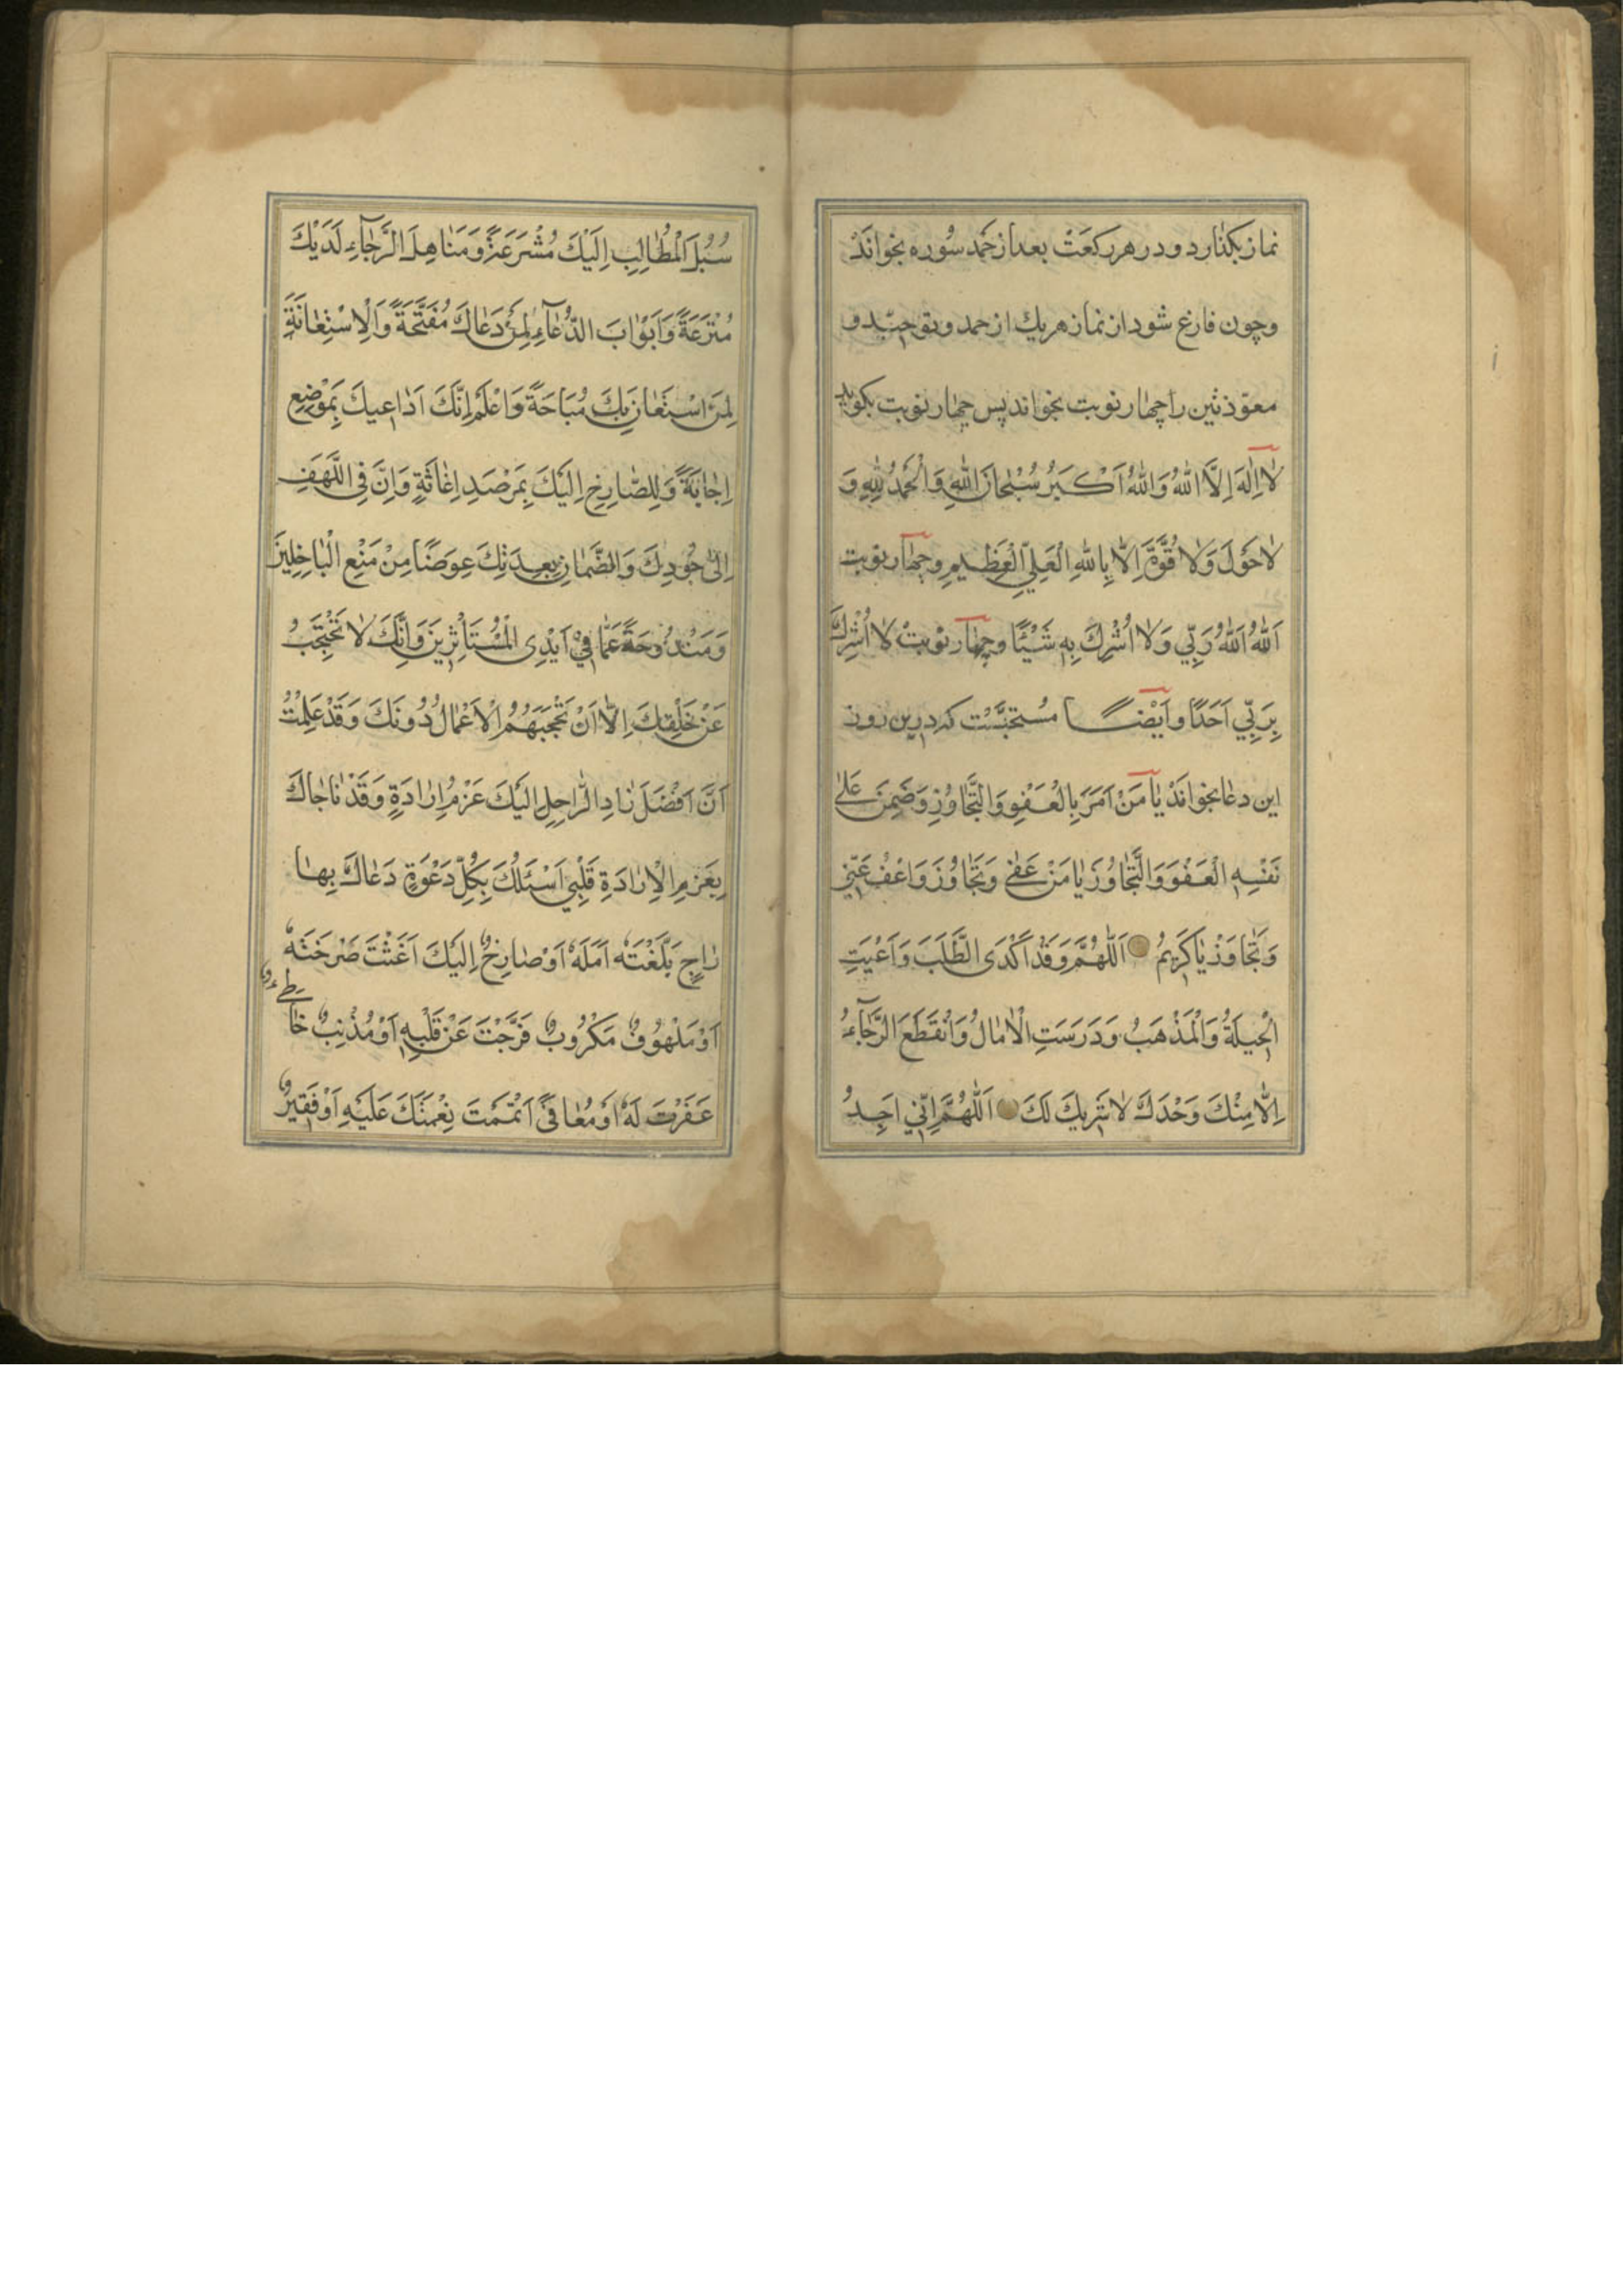 نماز بکذارد و در هر رکعت بعد از حمد سوره بخواند
و چون فارغ شود از نماز هریك از حمد و توحید و
معوّذتین را چهار نوبت بخواند پس چهار نوبت بکوید
لَا اِلٰهَ اِلَّا اللّٰهُ وَاللّٰهُ اَكْبَرُ سُبْحَانَ اللّٰهِ وَالْحَمْدُ لِلّٰهِ وَ
لَا حَوْلَ وَلَا قُوَّةَ اِلَّا بِاللّٰهِ الْعَلِيِّ الْعَظِيمِ و چهار نوبت
اَللّٰهُ اَللّٰهُ رَبِّي وَلَا اُشْرِكُ بِهِ شَيْئًا و چهار نوبت لَا اُشْرِكُ
بِرَبِّي اَحَدًا و اَیضًا مستحبّست که درین روز
این دعا بخواند يَا مَنْ اَمَرَ بِالْعَفْوِ وَالتَّجَاوُزِ وَضَمِنَ عَلٰى
نَفْسِهِ الْعَفْوَ وَالتَّجَاوُزَ يَا مَنْ عَفٰى وَتَجَاوَزَ وَاعْفُ عَنِّي
وَتَجَاوَزْ يَا كَرِيمُ اَللّٰهُمَّ وَقَدْ اَكْدَى الطَّلَبَ وَاَعْيَتِ
الْحِيلَةُ وَالْمَذْهَبُ وَدَرَسَتِ الْاٰمَالُ وَانْقَطَعَ الرَّجَآءُ
اِلَّا مِنْكَ وَحْدَكَ لَا شَرِيكَ لَكَ اَللّٰهُمَّ اِنِّي اَجِدُ
سُبُلَ الْمَطَالِبِ اِلَيْكَ مُشْرَعَةً وَمَنَاهِلَ الرَّجَآءِ لَدَيْكَ
مُتْرَعَةً وَاَبْوَابَ الدُّعَآءِ لِمَنْ دَعَاكَ مُفَتَّحَةً وَالْاِسْتِعَانَةَ
لِمَنِ اسْتَعَانَ بِكَ مُبَاحَةً وَاَعْلَمُ اِنَّكَ لِدَاعِيكَ بِمَوْضِعِ
اِجَابَةً وَلِلصَّارِخِ اِلَيْكَ بِمَرْصَدِ اِغَاثَةٍ وَاِنَّ فِي اللَّهَفِ
اِلٰى جُودِكَ وَالضَّمَانِ بِعِدَتِكَ عِوَضًا مِنْ مَنْعِ الْبَاخِلِينَ
وَمَنْدُوحَةً عَمَّا فِي اَيْدِى الْمُسْتَأْثِرِينَ وَاَنَّكَ لَا تَحْتَجِبُ
عَنْ خَلْقِكَ اِلَّا اَنْ تَحْجُبَهُمُ الْاَعْمَالُ دُونَكَ وَقَدْ عَلِمْتُ
اَنَّ اَفْضَلَ زَادِ الرَّاحِلِ اِلَيْكَ عَزْمُ اِرَادَةٍ وَقَدْ نَاجَاكَ
بِعَزْمِ الْاِرَادَةِ قَلْبِي اَسْئَلُكَ بِكُلِّ دَعْوَةٍ دَعَاكَ بِهَا
رَاجٍ بَلَّغْتَهُ اَمَلَهُ اَوْ صَارِخٌ اِلَيْكَ اَغَثْتَ صَرْخَتَهُ
اَوْ مَلْهُوفٌ مَكْرُوبٌ فَرَّجْتَ عَنْ قَلْبِهِ اَوْ مُذْنِبٌ خَاطِئٌ
غَفَرْتَ لَهُ اَوْ مُعَافًى اَتْمَمْتَ نِعْمَتَكَ عَلَيْهِ اَوْ فَقِيرٌ